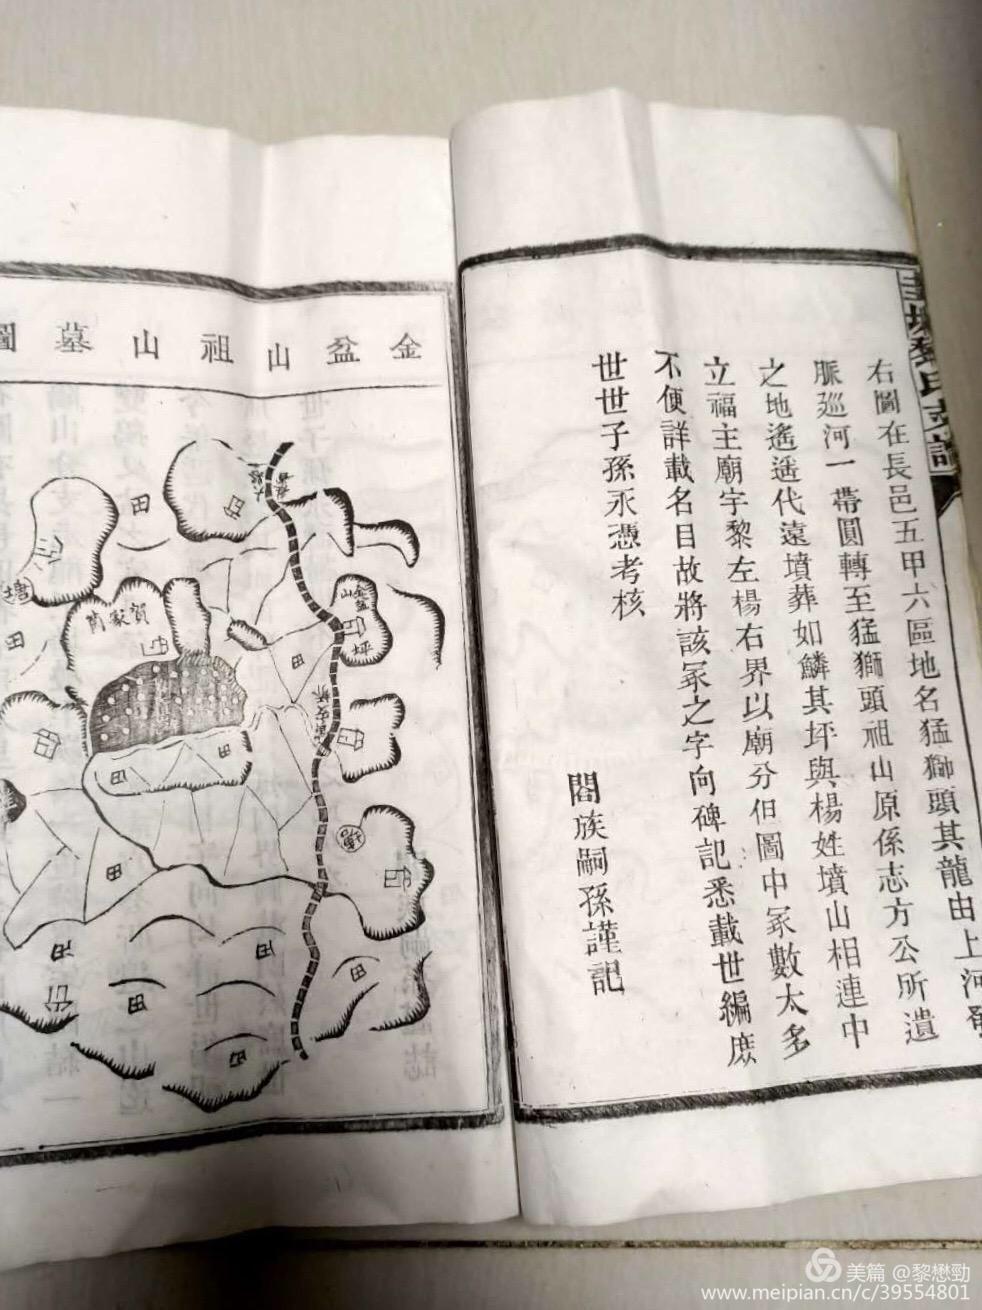 右圖在長邑五甲六區地名猛獅頭其龍由上河發
脈廵河一帶圓轉至猛獅頭祖山原係志方公所遺
之地遙遞代遠墳葬如鱗其坪與楊姓墳山相連中
立福主廟宇黎左楊右界以廟分但圖中冡數太多
不便詳載名目故將該冡之字向碑記悉載世編庶
世世子孫永憑考核
閤族嗣孫謹記
金盆山祖山墓圖
田
塘
賀家
田
田
坪
田
田
田
田
田
田
美篇 @黎懋勁
www.meipian.cn/c/39554801